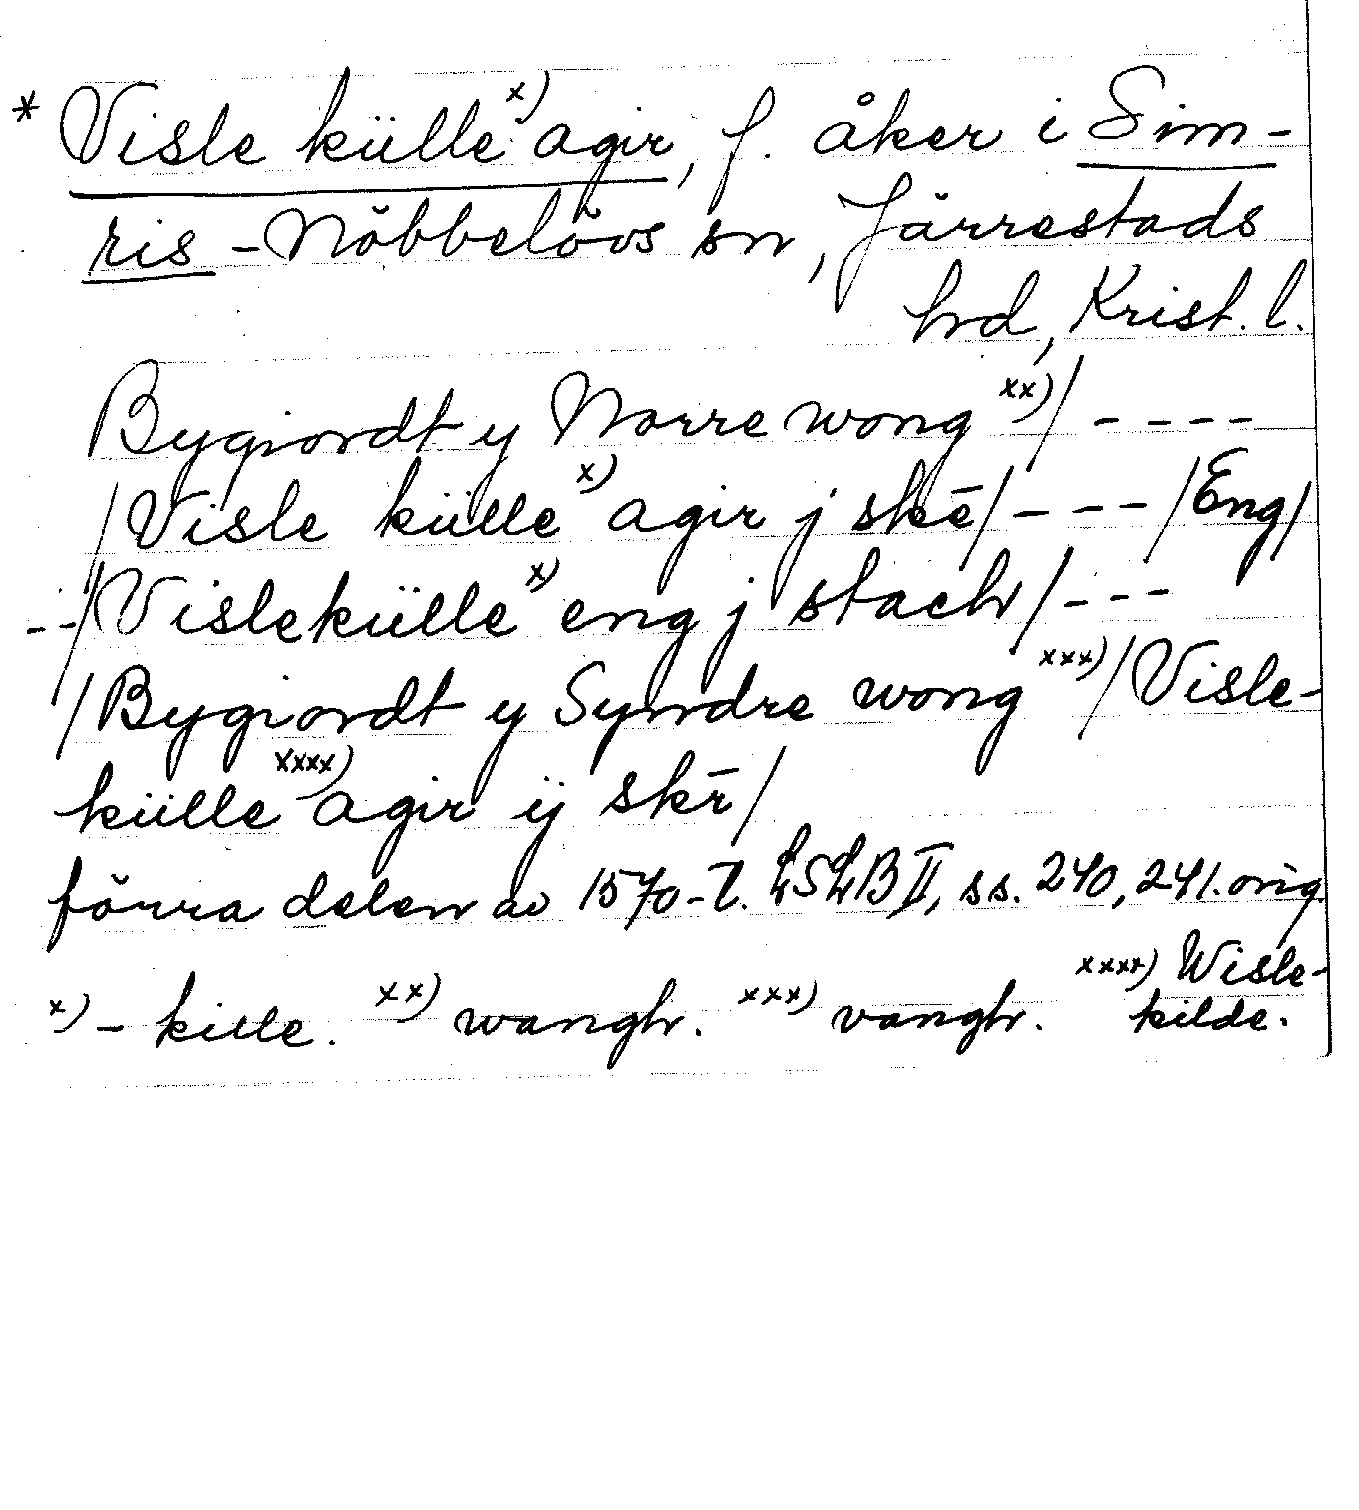 * Visle külle x) agir, f. åker i Sim-
ris-Nöbbelövs sn, Järrestads
hd, Krist. l.
Bygiordt y Norre wong xx)/ - - - -
/Visle külle x) agir j skē/ - - - /Eng/
--/Vislekülle x) eng j stach/ - - -
/Bygiordt y Syndre wong xxx)/Visle-
külle xxxx) agir ij skr̄/
förra delen av 1570-t. LSLB II, ss. 240, 241. orig.
x) - kille. xx) wangh. xxx) vangh. xxxx) Wisle-
kilde.